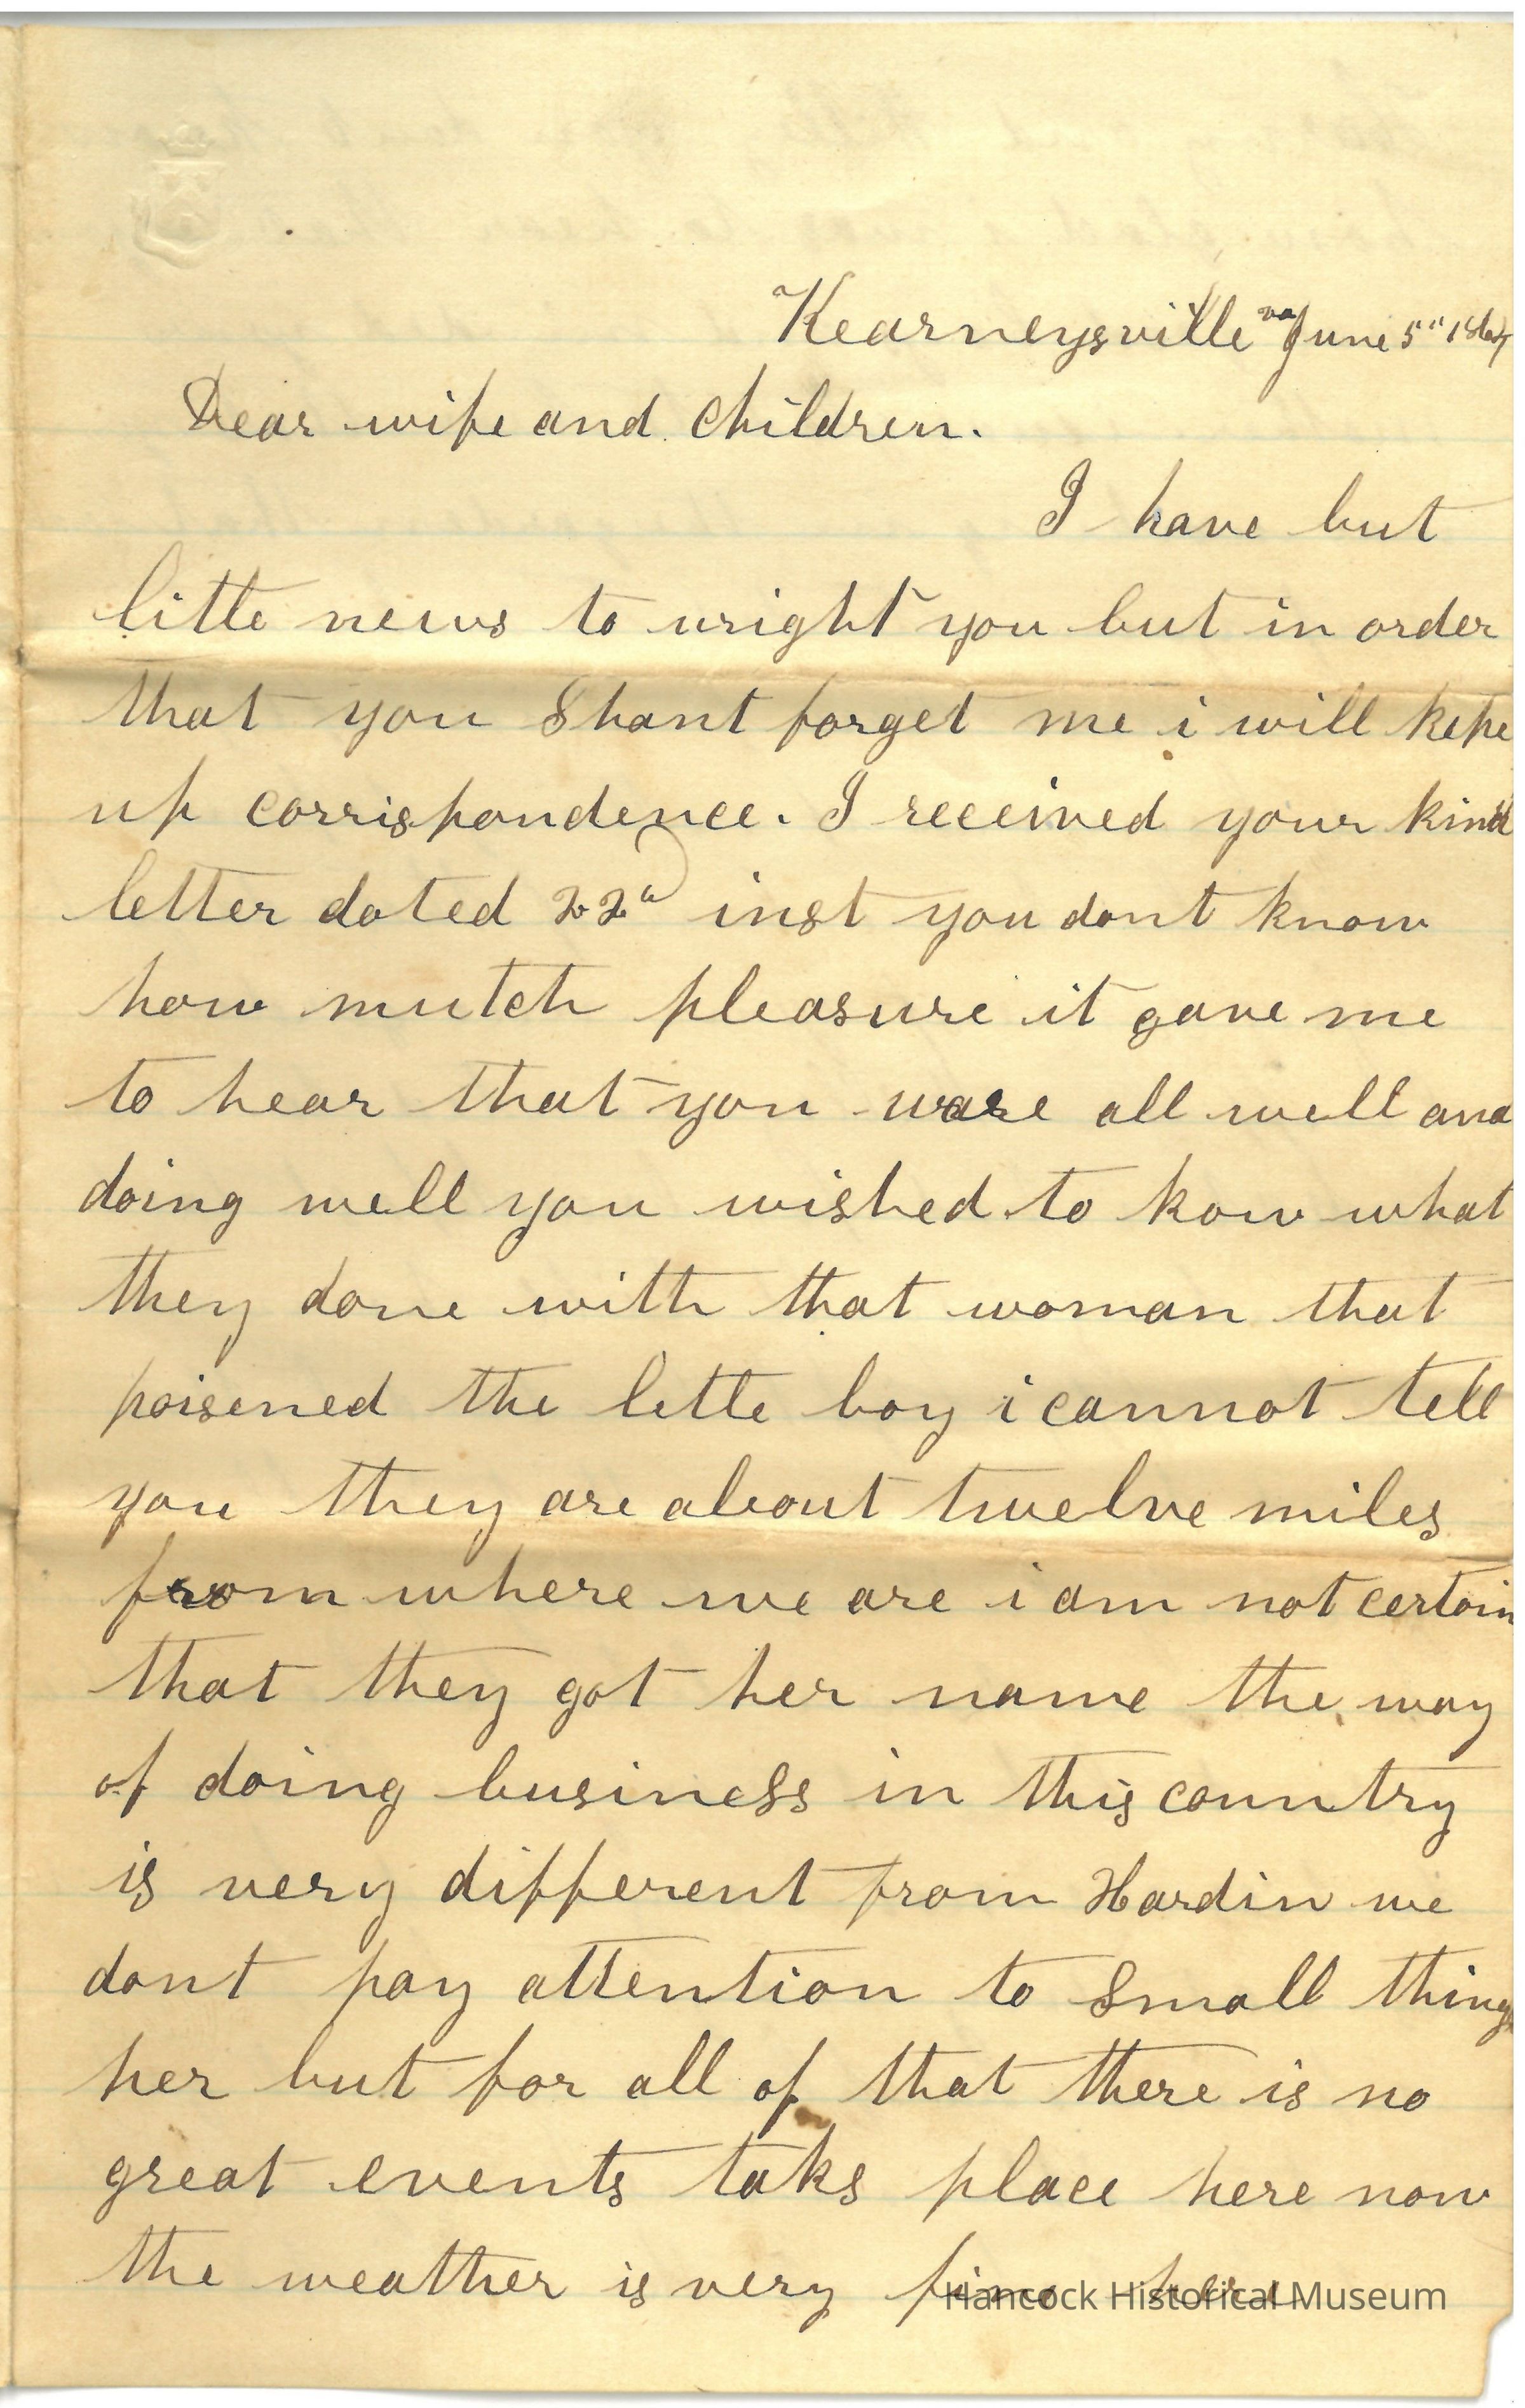 Kearneysville va June 5" 1864
Dear wife and Children.
I have but
litte news to wright you but in order
that you Shant forget me i will kepe
up corrispondence. I received your kind
letter dated 22" inst you dont know
how mutch pleasure it gave me
to hear that you ware all well and
doing well you wished to kow what
they done with that woman that
poisened the lette boy i cannot tell
you they are about twelve miles
from where we are i am not certain
that they got her name the way
of doing business in this country
is very different from Hardin we
dont pay attention to Small things
her but for all of that there is no
great events taks place here now
the weather is very fine here
Hancock Historical Museum